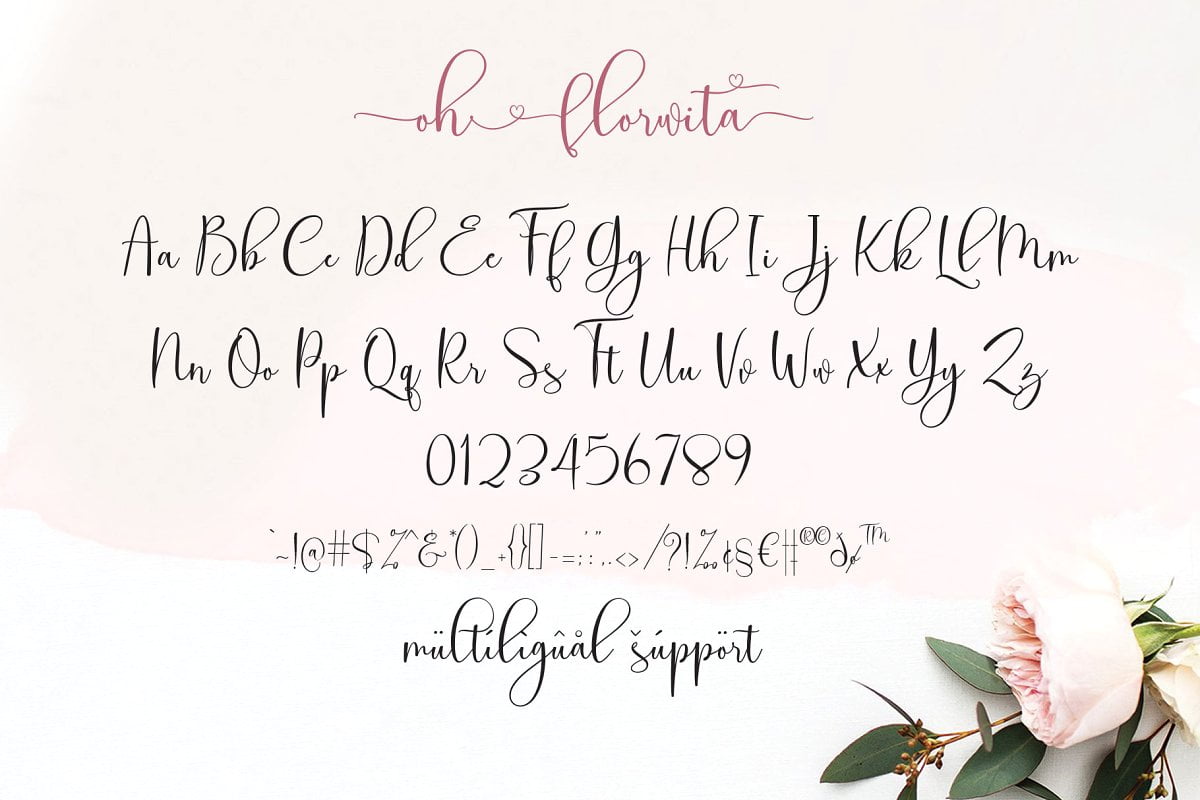 oh florwita
Aa Bb Cc Dd Ee Ff Gg Hh Ii Jj Kk Ll Mm
Nn Oo Pp Qq Rr Ss Tt Uu Vv Ww Xx Yy Zz
0123456789
`~!@#$%^&*()_+{}[]-=;:'",.<>/?!‰¢§€‡®©ð™
mültíligûål šúppört